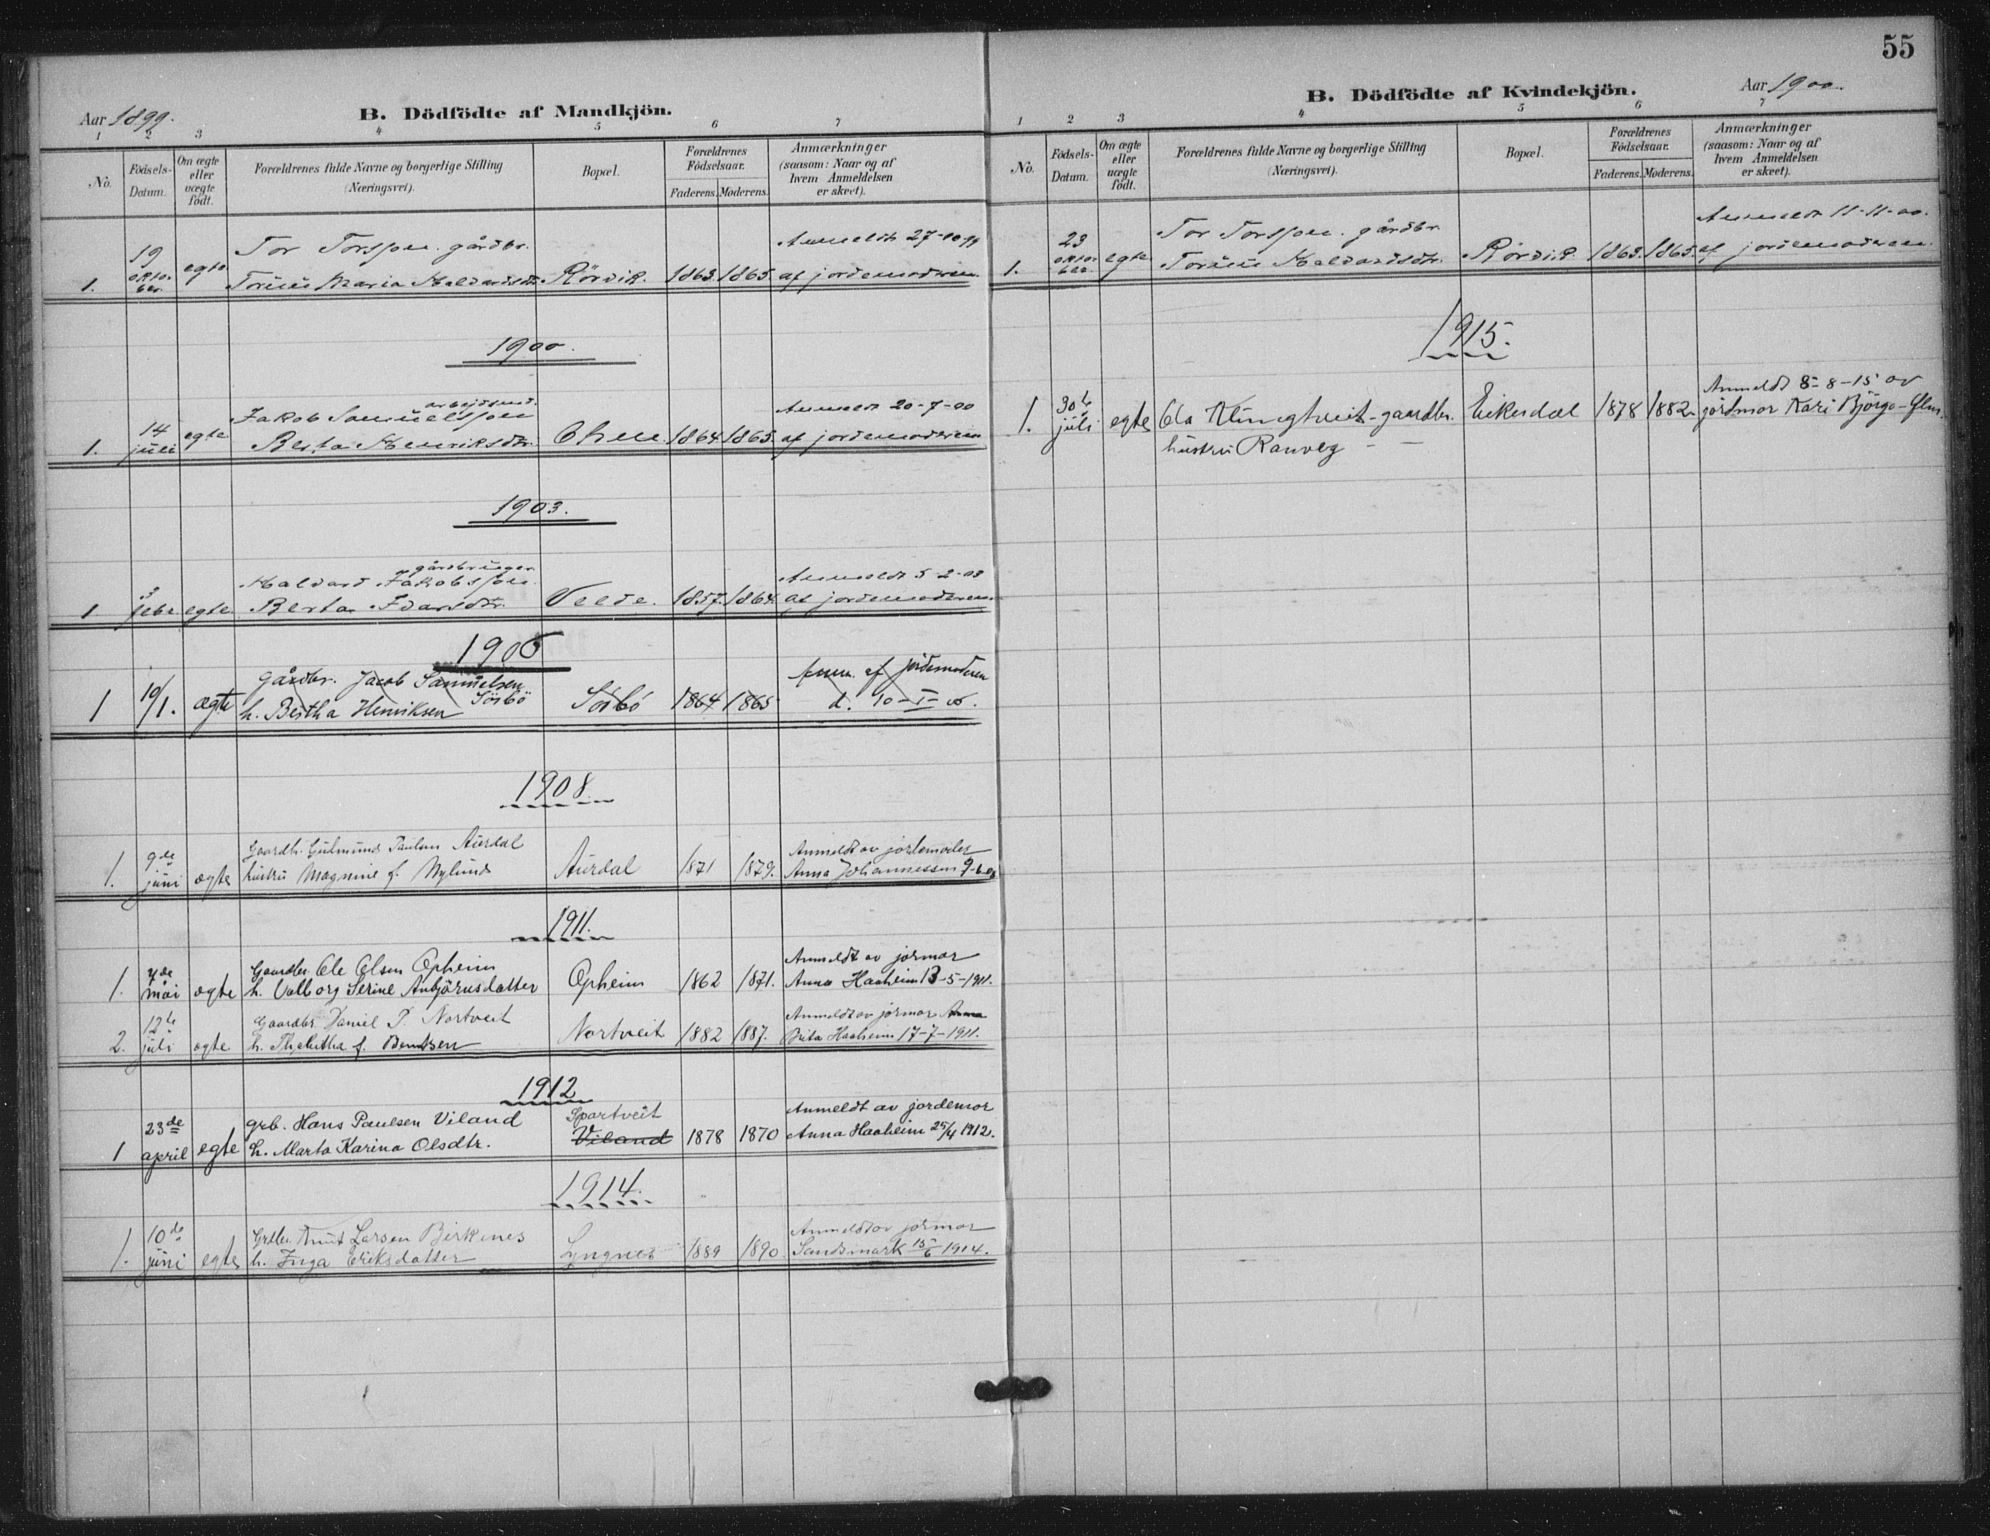 55
Aar 1899.
B. Dödfödte af Mandkjön.
1 2 3 4 5 6 7
No.
Födsels-
Datum.
Om ægte
eller
uægte
födt.
Forældrenes fulde Navne og borgerlige Stilling
(Næringsvei).
Bopæl.
Forældrenes
Födselsaar.
Faderens. Moderens.
Anmærkninger
(saasom: Naar og af
hvem Anmeldelsen
er skeet).
19 Tor Torsson. gårdbr. Anmeldt 27-10-99
1. oktober egte Maria Halvardsdtr. Rörvik. 1863 1865 af jordemoderen
1900.
arbejdsmd.
Jakob Samuelsson Anmeldt 20-7-00
1. 14 juli egte Berta Henriksdtr. 1864 1865. af jordemoderen
1903.
gårdbruger
Halvard Jakobsson Anmeldt 5-2-03
1 3 febr. egte Berta Ivarsdtr. 1857. 1864. af jordemoderen
1906
gårdbr. Jacob Samuelsen af jordemoderen
1 10/1. ægte h. Bertha Henriksen Sörbö Sörbö 1864 1865 d. 10-I-06.
1908.
9de Gaardbr. Gudmund Paulsen Aurdal Anmeldt av jordemoder
1. juni ægte hustru Magnine f. Nylund Aurdal 1871 1879. Anna Johannessen 9-6-08
1911.
7de Gaardbr. Ole Olsen Opheim Anmeldt av jormor
1. mai ægte h. Valborg Serine Anbjörnsdatter Opheim 1862 1871. Anna Haaheim 13-5-1911.
12te Gaardbr Daniel P. Nortveit Anmeldt av jormor Anna
2. juli ægte h. f. Bentsen Nortveit 1882 1887. Brita Haaheim 17-7-1911.
1912
23de grb. Hans Paulsen Viland Spartveit Anmeldt av jordemor
1 april egte h. Marta Karina Olsdtr. Viland 1878 1870 Anna Haaheim 25/4 1912.
1914.
10de Grdbr. Knut Larsen Birkenes Anmeldt av jormor
1. juni egte h. Inga Eriksdatter Lyngnes 1889 1890 Sandsmark 15/6 1914.
Aar 1900.
B. Dödfödte af Kvindekjön.
1 2 3 4 5 6 7
No.
Födsels-
Datum.
Om ægte
eller
uægte
födt.
Forældrenes fulde Navne og borgerlige Stilling
(Næringsvei).
Bopæl.
Forældrenes
Födselsaar.
Faderens. Moderens.
Anmærkninger
(saasom: Naar og af
hvem Anmeldelsen
er skeet).
23 Tor Torsson. gårdbr. Anmeldt 11-11-00.
1. oktober egte Halvardsdtr. Rörvik. 1863. 1865. af jordemoderen.
1915.
30te Anmeldt 8-8-15 av
1. juli egte Ola Klungtveit - gaardbr. Eikesdal 1878 1882 jordmor Kari Björgo
hustru Ranveg - —